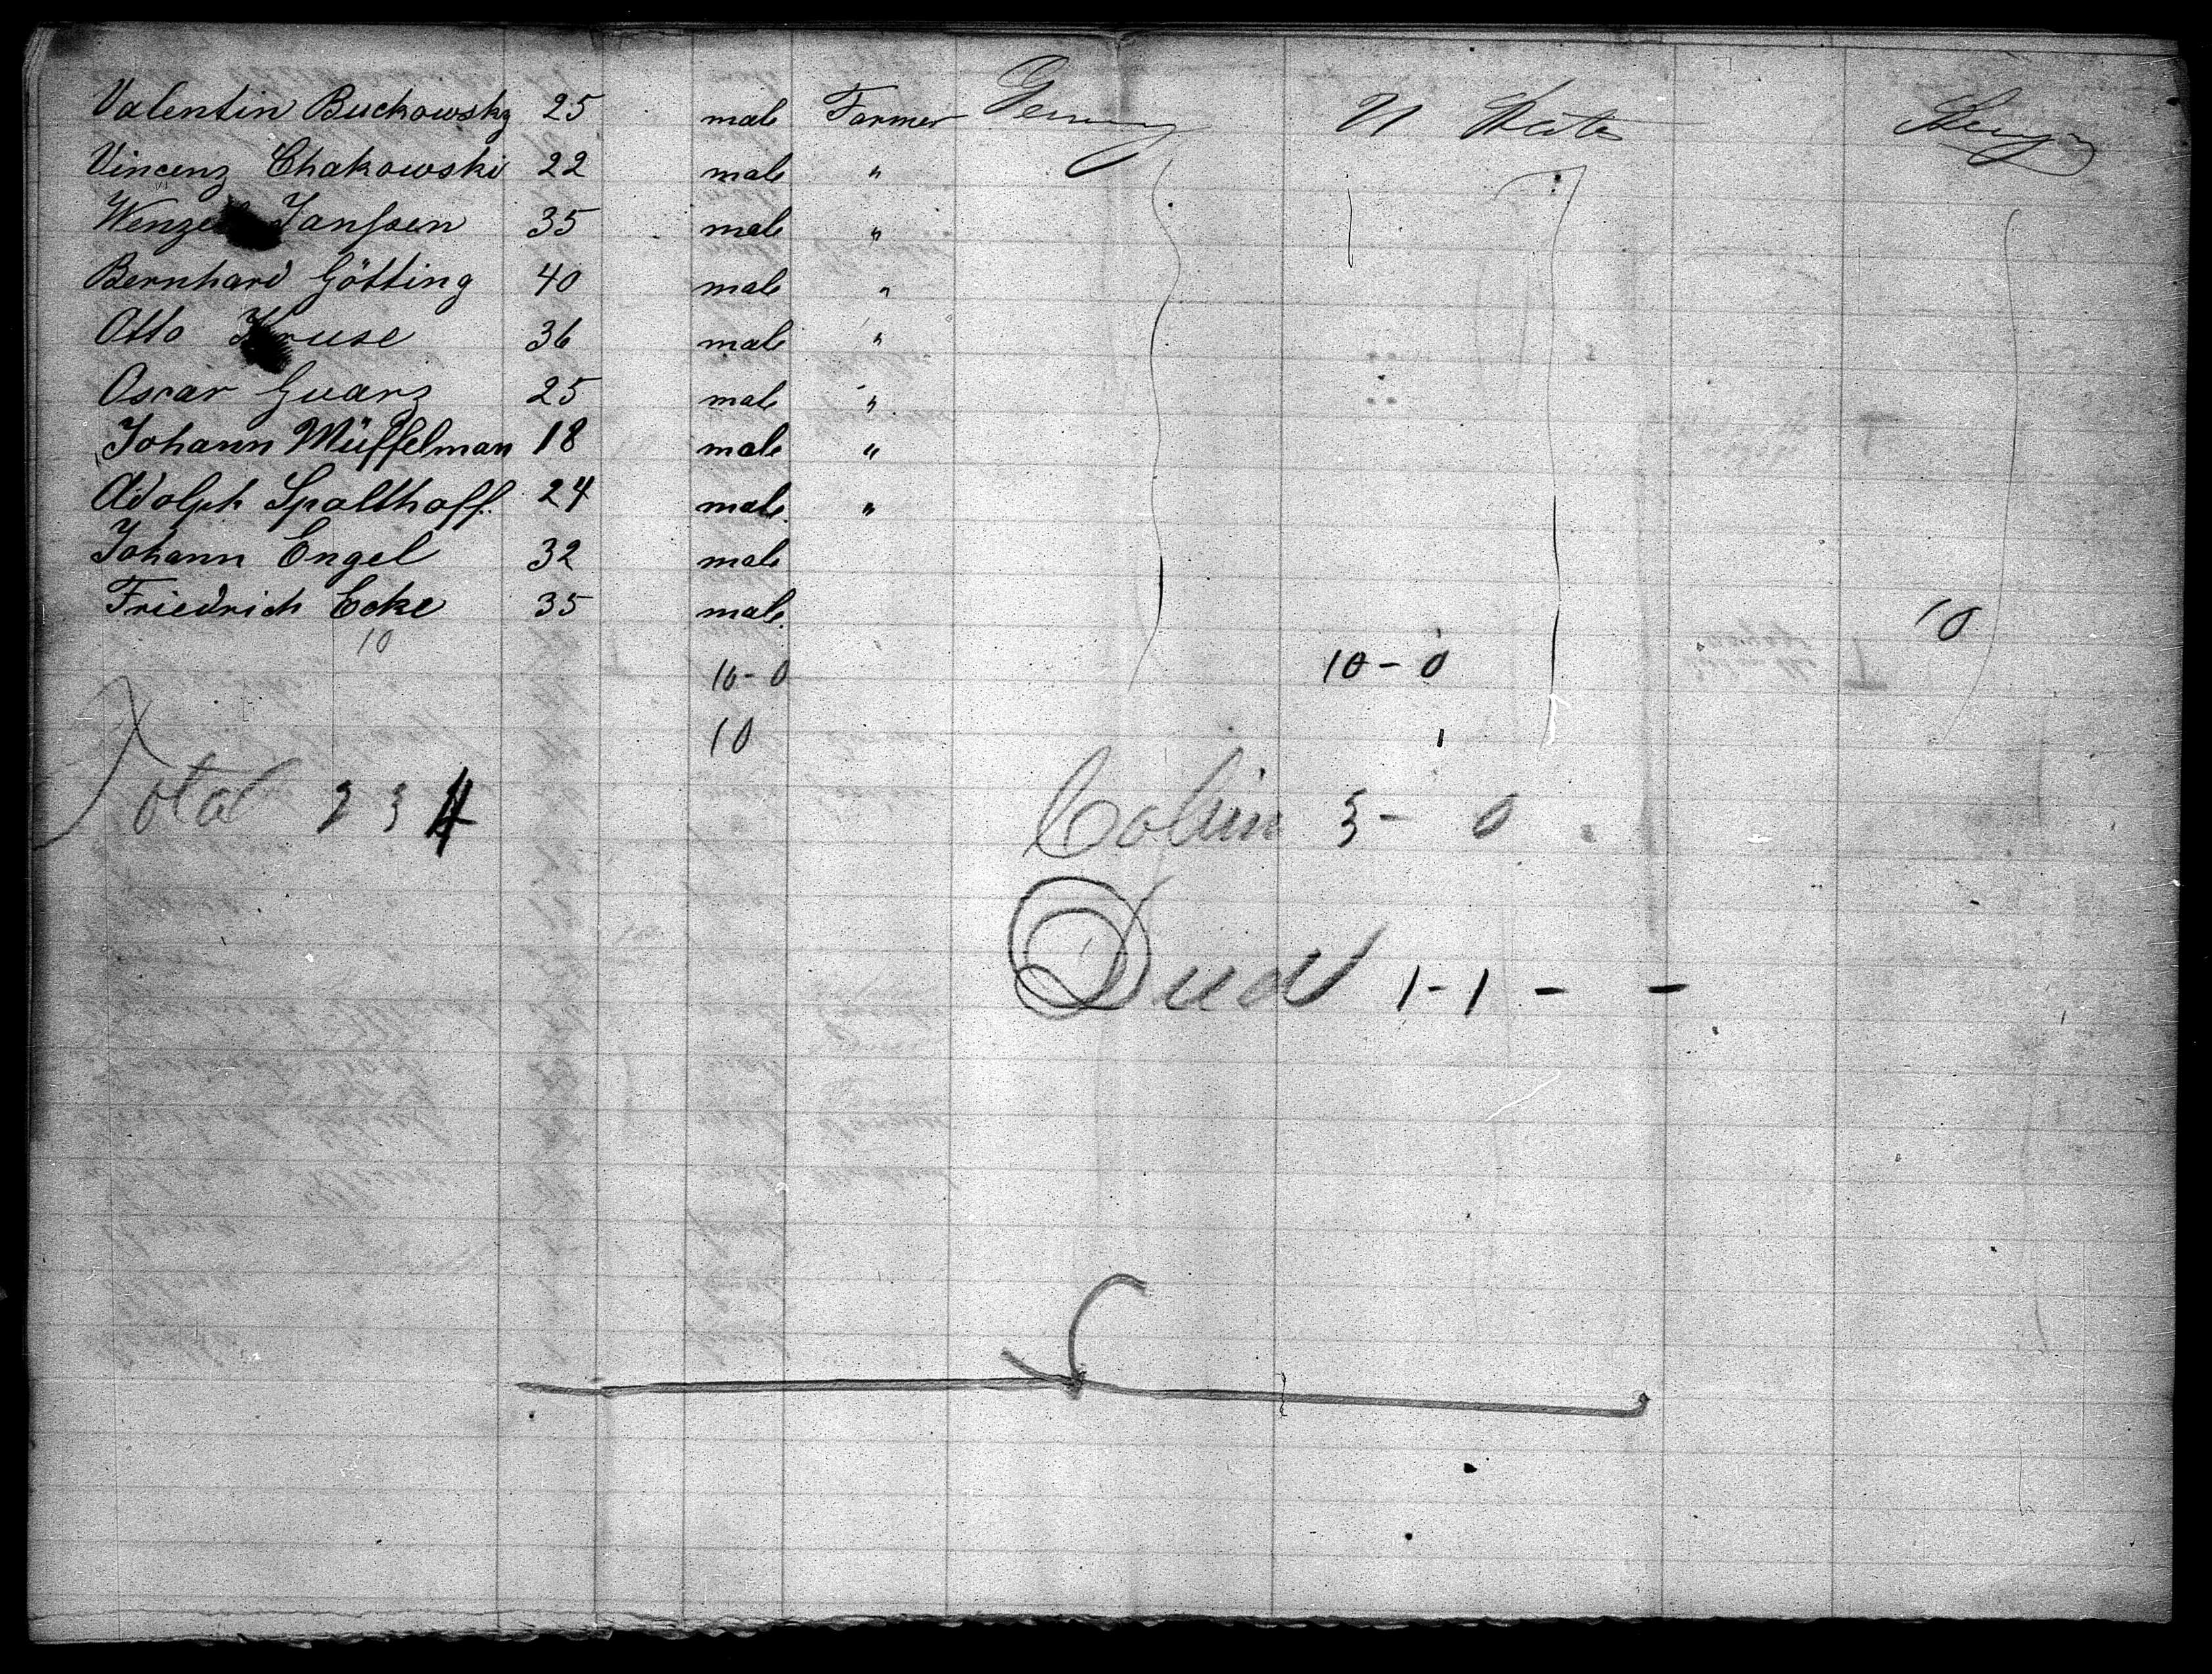 Valentin Buckowsky 25 male Farmer Germany U States Steerage
Vincenz Chakowski 22 male "
Wenzel Janssen 35 male "
Bernhard Götting 40 male "
Otto Kruse 36 male "
Oscar Guarz 25 male "
Johann Müffelman 18 male "
Adolph Spalthoff. 24 male "
Johann Engel 32 male
Friedrich Ecke 35 male 10
10
10-0 10-0
10
Total 234
Cabin 3- 0
Died 1-1 - -